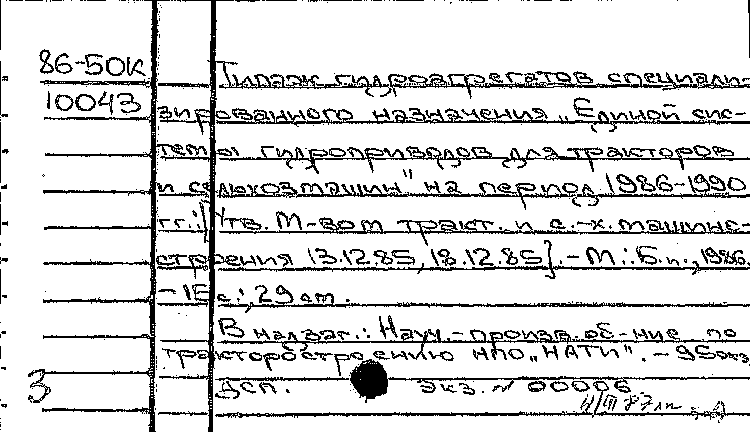 86-50К
10043
Типаж гидроагрегатов специали-
зированного назначения „Единой сис-
темы гидроприводов для тракторов
и сельхозмашин" на период 1986-1990
гг.: [Утв. М-вом тракт. и с.-х. машино-
строения 13.12.85, 18.12.85]. - М.: Б.и., 1986.
- 15 с.; 29 см.
В надзаг.: Науч.-произв. об-ние по
тракторостроению НПО „НАТИ". - 95 экз.
Дсп. Экз. № 00006
3